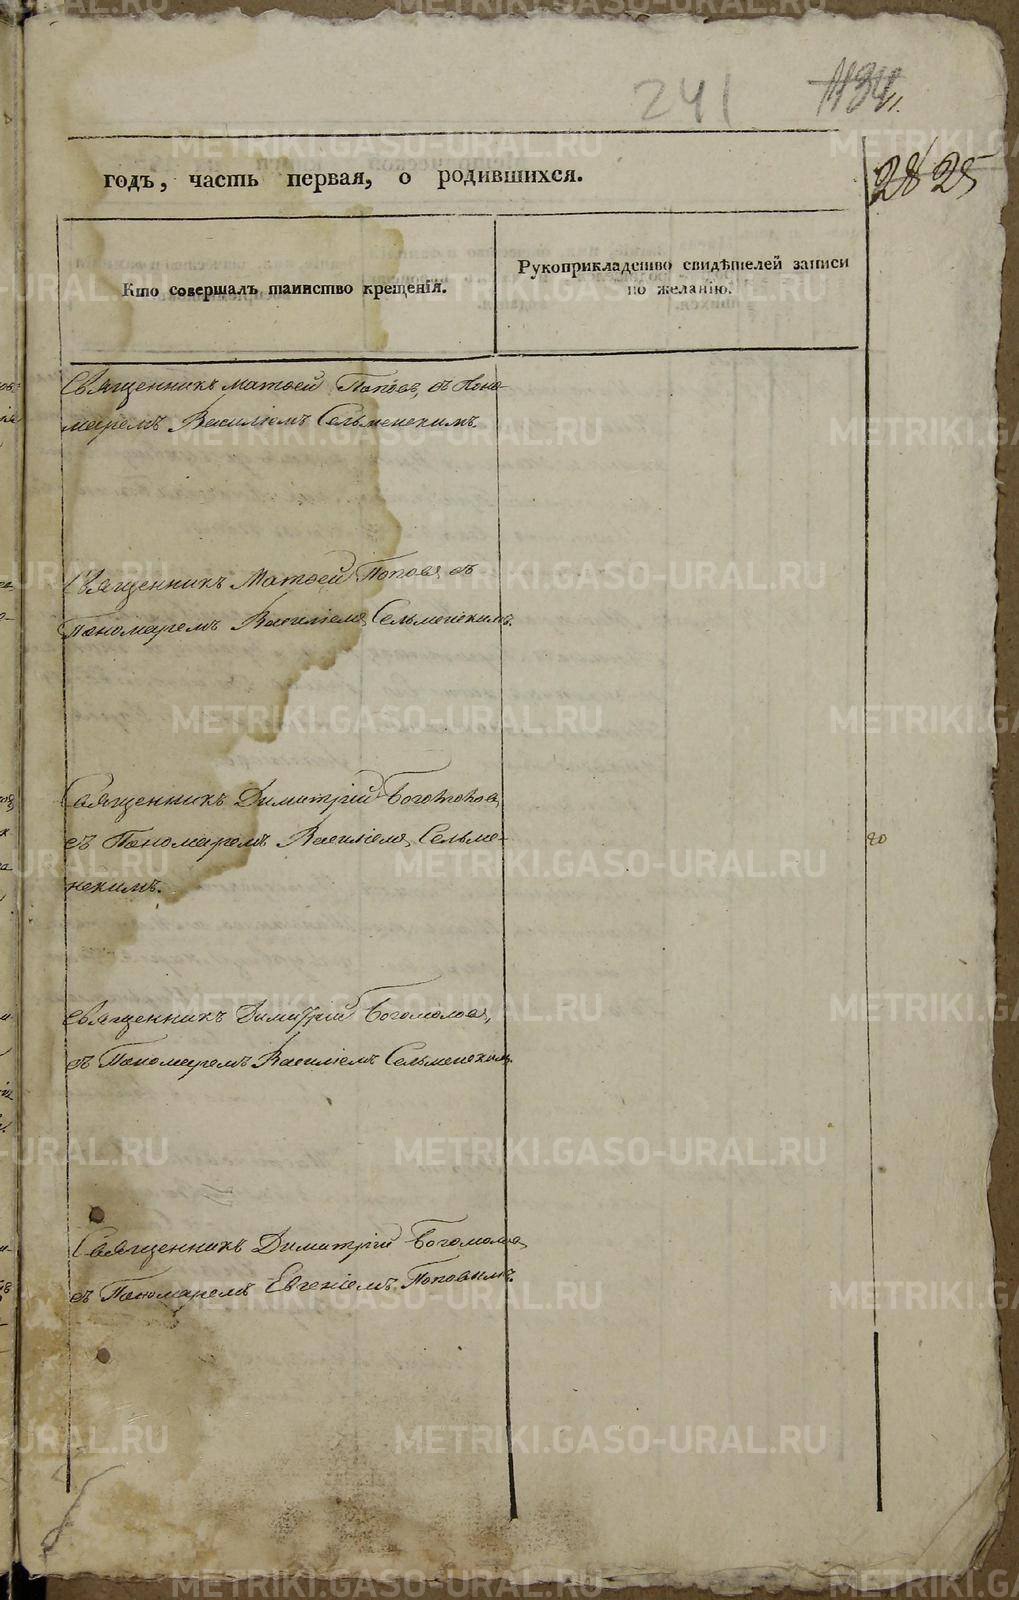 241
годъ, часть первая, о родившихся.
28 25
Кто совершалъ таинство крещенія.
Рукоприкладство свидѣтелей записи по желанію.
Священникъ Матѳей Поповъ, съ Поно-
маремъ Василіемъ Сельменскимъ.
Священникъ Матѳей Поповъ, съ
Пономаремъ Василіемъ Сельменскимъ.
Священникъ Димитрій Богомолов,
съ Пономаремъ Василіемъ Сельме-
нскимъ.
20
Священникъ Димитрій Богомолов,
съ Пономаремъ Василіемъ Сельменскимъ.
Священникъ Димитрій Богомолов,
съ Пономаремъ Евгеніемъ Поповымъ.
METRIKI.GASO-URAL.RU